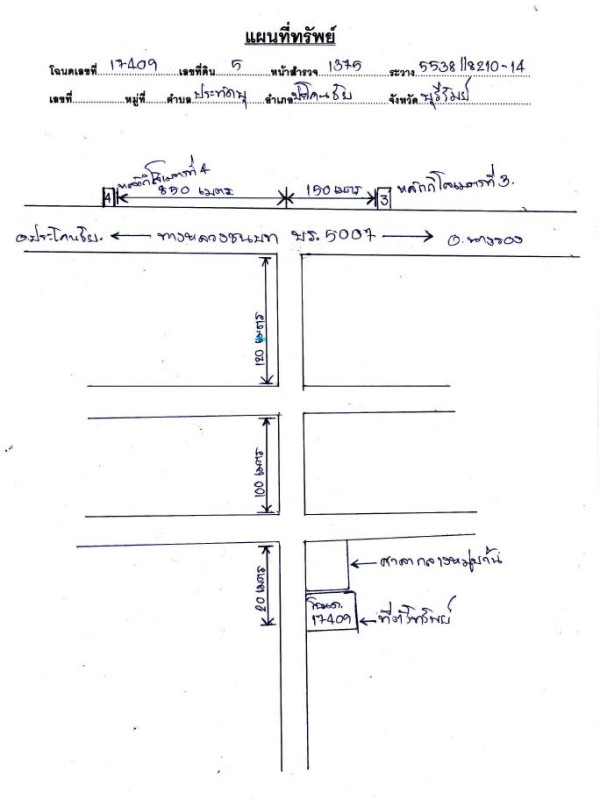 แผนที่ทรัพย์
โฉนดเลขที่ 17409 เลขที่ดิน 5 หน้าสำรวจ 1375 ระวาง 5538 II 8210-14
เลขที่ หมู่ที่ ตำบล ประทัดบุ อำเภอ ประโคนชัย จังหวัด บุรีรัมย์
หลักกิโลเมตรที่ 4
4 850 เมตร 150 เมตร 3 หลักกิโลเมตรที่ 3.
อ.ประโคนชัย. ทางหลวงชนบท บร. 5007 อ.นางรอง
120 เมตร
100 เมตร
20 เมตร
ศาลากลางหมู่บ้าน
โฉนด.
17409 ที่ตั้งทรัพย์